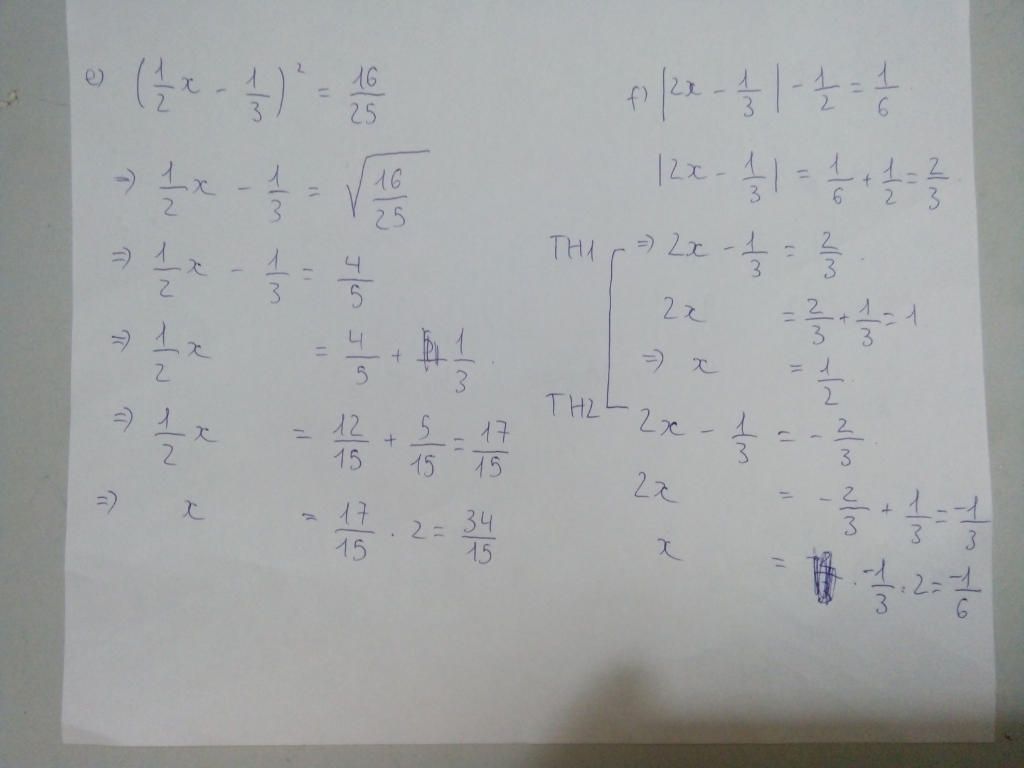 e) (1/2 x - 1/3)² = 16/25
=> 1/2 x - 1/3 = √(16/25)
=> 1/2 x - 1/3 = 4/5
=> 1/2 x = 4/5 + 1/3.
=> 1/2 x = 12/15 + 5/15 = 17/15
=> x = 17/15 . 2 = 34/15
f) |2x - 1/3| - 1/2 = 1/6.
|2x - 1/3| = 1/6 + 1/2 = 2/3.
TH1 => 2x - 1/3 = 2/3.
2x = 2/3 + 1/3 = 1
=> x = 1/2.
TH2 2x - 1/3 = -2/3.
2x = -2/3 + 1/3 = -1/3
x = . -1/3 . 2 = -1/6